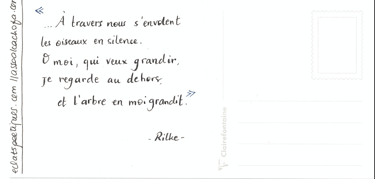 « ... À travers nous s'envolent
les oiseaux en silence.
O moi, qui veux grandir,
je regarde au dehors,
et l'arbre en moi grandit. »
- Rilke -
Clairefontaine